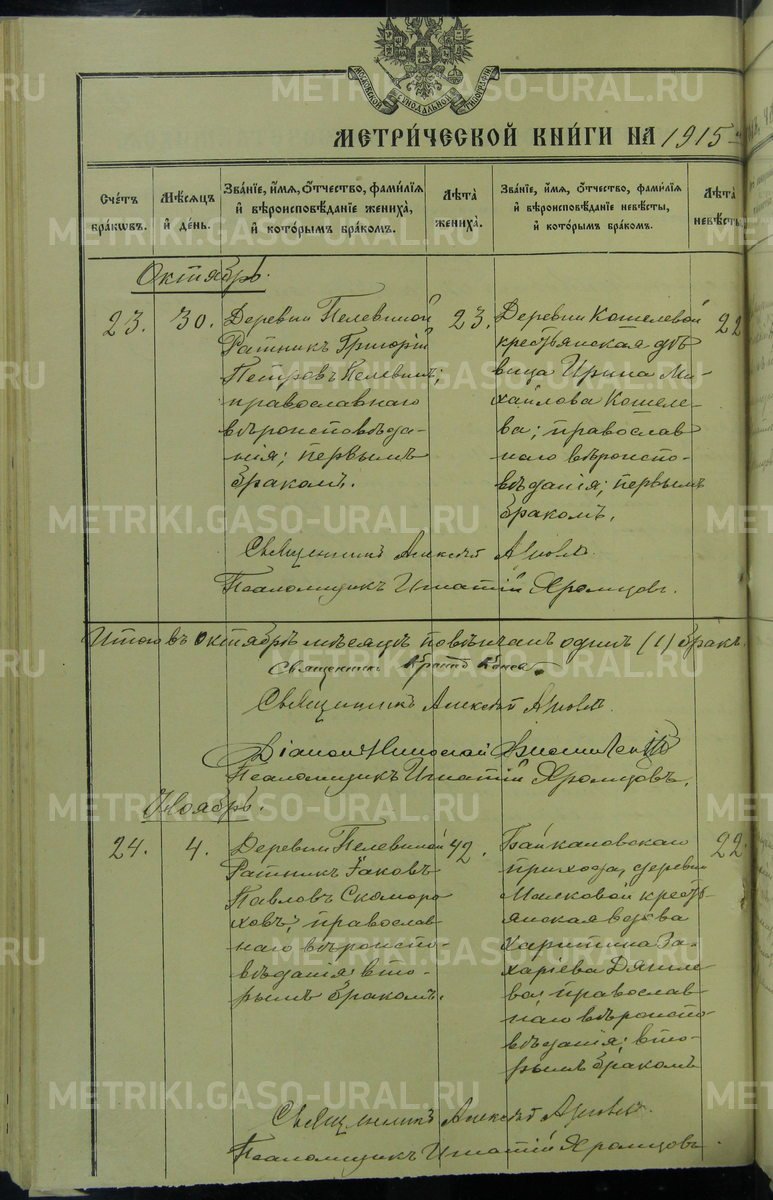 МОСКОВСКОЙ СѴНОДАЛЬНОЙ ТИПОГРАФІИ
METRIKI.GASO-URAL.RU
МЕТРИ́ЧЕСКОЙ КНИ́ГИ НА 1915
Сче́тъ бра́кѡвъ.
Мѣ́сяцъ и҆ де́нь.
Зва́нїе, и҆́мѧ, ѻ҆́тчество, фами́лїѧ и҆ вѣроисповѣ́данїе жениха̀, и҆ кото́рымъ бра́комъ.
Лѣ́та жениха̀.
Зва́нїе, и҆́мѧ, ѻ҆́тчество, фами́лїѧ и҆ вѣроисповѣ́данїе невѣ́сты, и҆ кото́рымъ бра́комъ.
Лѣ́та невѣ́ст
Октябрь.
23.
30.
Деревни Пелевиной
Ратникъ Григорій
Петровъ Пелевинъ;
православнаго
вѣроисповѣда-
нія; первымъ
бракомъ.
23.
Деревни Кошелевой
крестьянская дѣ-
вица Ирина Ми-
хайлова Кошеле-
ва; православ
наго вѣроиспо-
вѣданія; первымъ
бракомъ.
22
Священникъ Алексѣй
Псаломщикъ Игнатій Яромцовъ.
Итого въ октябрѣ мѣсяцѣ повѣнчанъ одинъ (1) бракъ.
Священникъ
Священникъ Алексѣй
Діаконъ Николай
Псаломщикъ Игнатій Яромцовъ.
Ноябрь.
24.
4.
Деревни Пелевиной
Ратникъ Іаковъ
Павловъ Скоморо
ховъ; православ
наго вѣроиспо-
вѣданія; вто-
рымъ бракомъ.
42.
Байкаловскаго
прихода, деревни
Малковой кресть
янская вдова
Харитина За-
харіева Дягиле
ва; православ
наго вѣроиспо
вѣданія; вто-
рымъ бракомъ
22.
Священникъ Алексѣй
Псаломщикъ Игнатій Яромцовъ.